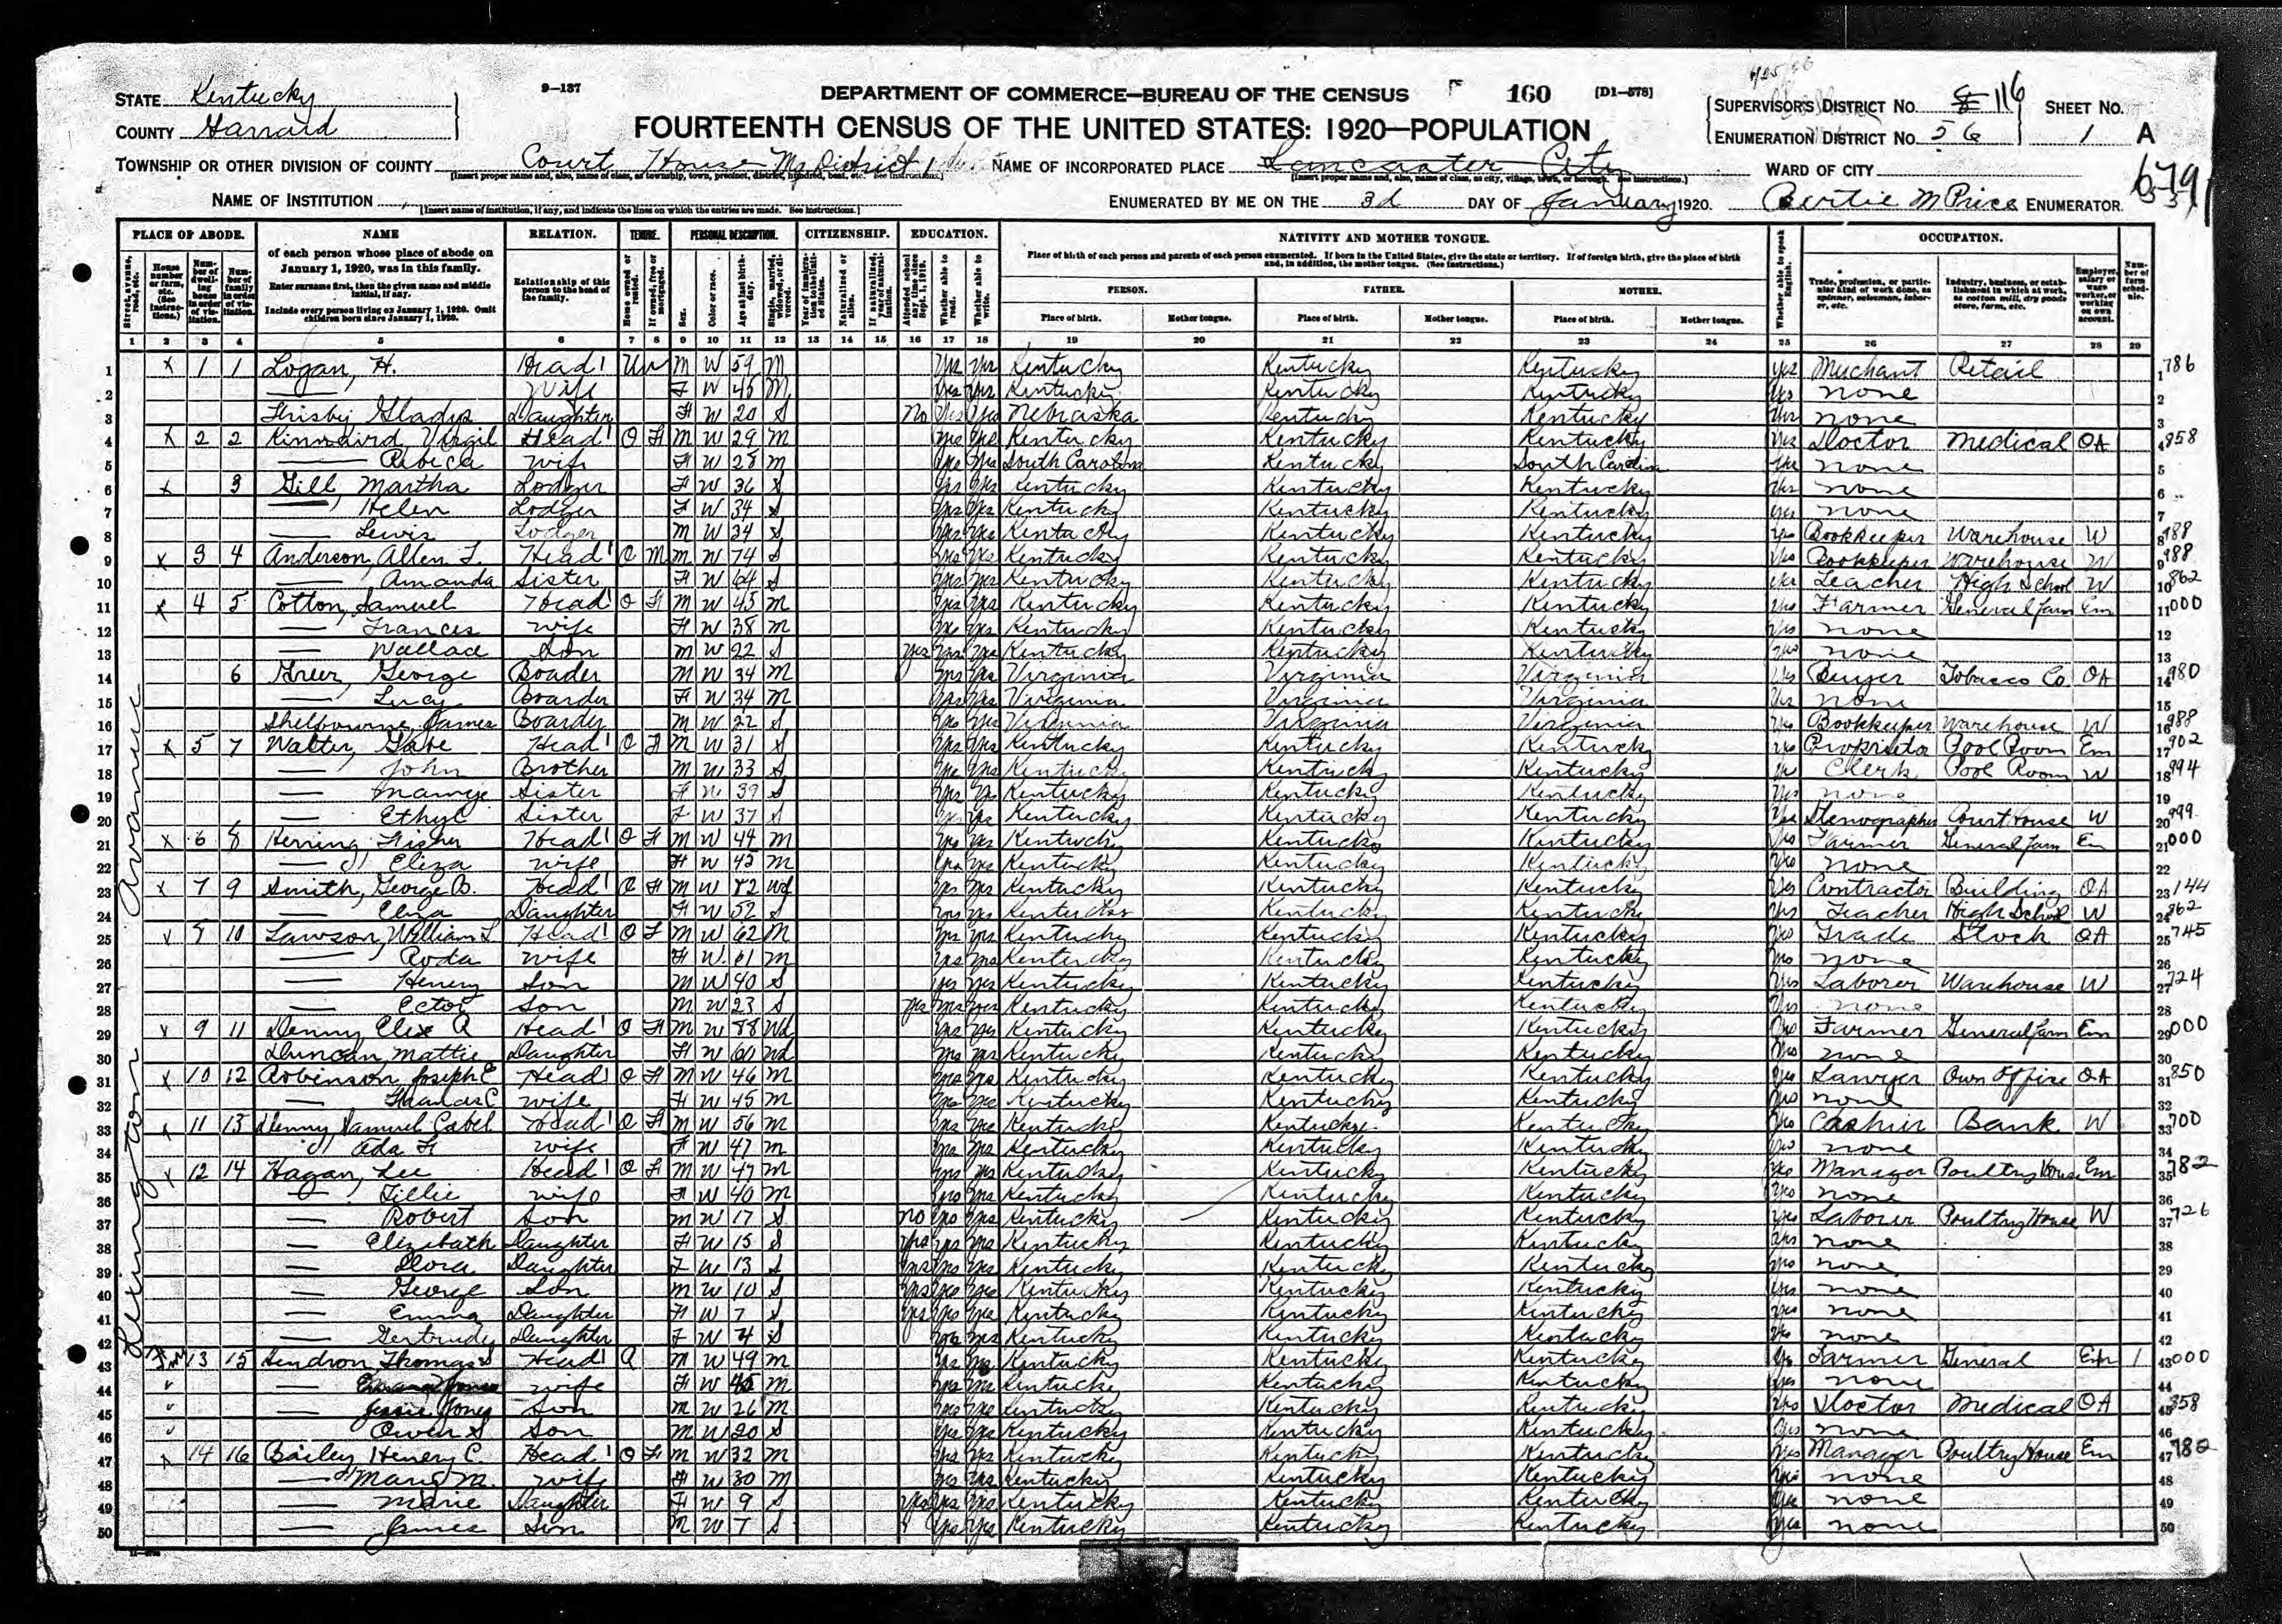 STATE Kentucky
COUNTY Garrard
9—137
DEPARTMENT OF COMMERCE—BUREAU OF THE CENSUS
160 [D1-578]
FOURTEENTH CENSUS OF THE UNITED STATES: 1920—POPULATION
SUPERVISOR'S DISTRICT NO. 8 116 SHEET NO.
ENUMERATION DISTRICT NO. 56 1 A
TOWNSHIP OR OTHER DIVISION OF COUNTY Court House Mg District 1
NAME OF INCORPORATED PLACE Lancaster City
WARD OF CITY
NAME OF INSTITUTION
[Insert name of institution, if any, and indicate the lines on which the entries are made. See instructions.]
ENUMERATED BY ME ON THE 3d DAY OF January, 1920. Bertie M Price ENUMERATOR.
PLACE OF ABODE. NAME RELATION. TENURE. PERSONAL DESCRIPTION. CITIZENSHIP. EDUCATION. NATIVITY AND MOTHER TONGUE. OCCUPATION.
of each person whose place of abode on January 1, 1920, was in this family.
Enter surname first, then the given name and middle initial, if any.
Include every person living on January 1, 1920. Omit children born since January 1, 1920.
Relationship of this person to the head of the family.
Place of birth of each person and parents of each person enumerated. If born in the United States, give the state or territory. If of foreign birth, give the place of birth and, in addition, the mother tongue. (See instructions.)
PERSON. FATHER. MOTHER.
Place of birth. Mother tongue. Place of birth. Mother tongue. Place of birth. Mother tongue.
1 2 3 4 5 6 7 8 9 10 11 12 13 14 15 16 17 18 19 20 21 22 23 24 25 26 27 28 29
Lexington Avanue
1 x 1 1 Logan, H. Head 1 Un M W 59 M Yes Yes Kentucky Kentucky Kentucky yes Merchant Retail 786
2 — Wife F W 45 M Yes Yes Kentucky Kentucky Kentucky Yes none
3 Frisby Gladys Daughter F W 20 S No Yes Yes Nebraska Kentucky Kentucky Yes none
4 x 2 2 Kinnaird, Virgil Head 1 O F M W 29 M Yes Yes Kentucky Kentucky Kentucky Yes Doctor Medical OA 858
5 — Rebica Wife F W 28 M Yes Yes South Carolina Kentucky South Carolina Yes none
6 x 3 Gill, Martha Lodger F W 36 S Yes Yes Kentucky Kentucky Kentucky Yes none
7 — Helen Lodger F W 34 S Yes Yes Kentucky Kentucky Kentucky yes none
8 — Lewis Lodger M W 34 S Yes Yes Kentucky Kentucky Kentucky Yes Bookkeeper Warehouse W 988
9 x 3 4 Anderson, Allen F. Head 1 O M M W 74 S Yes Yes Kentucky Kentucky Kentucky Yes Bookkeeper Warehouse W 988
10 — Amanda Sister F W 64 S Yes Yes Kentucky Kentucky Kentucky yes Teacher High School W 862
11 x 4 5 Cotton, Samuel Head 1 O F M W 45 M Yes Yes Kentucky Kentucky Kentucky Yes Farmer General farm Em 000
12 — Frances Wife F W 38 M Yes Yes Kentucky Kentucky Kentucky Yes none
13 — Wallace Son M W 22 S yes Yes Yes Kentucky Kentucky Kentucky Yes none
14 6 Greer, George Boader M W 34 M Yes Yes Virginia Virginia Virginia Yes Buyer Tobacco Co OA 980
15 — Lucy Boarder F W 34 M Yes Yes Virginia Virginia Virginia Yes none
16 Shelbourne, James Boarder M W 22 S Yes Yes Virginia Virginia Virginia Yes Bookkeeper Warehouse W 988
17 x 5 7 Walter, Gabe Head 1 O F M W 31 S Yes Yes Kentucky Kentucky Kentucky Yes Proprietor Pool Room Em 902
18 — John Brother M W 33 S Yes Yes Kentucky Kentucky Kentucky Yes Clerk Pool Room W 994
19 — Mamye Sister F W 39 S Yes Yes Kentucky Kentucky Kentucky Yes none
20 — Ethyl Sister F W 37 S Yes Yes Kentucky Kentucky Kentucky Yes Stenographer Court House W 999
21 x 6 8 Herring Fisher Head 1 O F M W 44 M Yes Yes Kentucky Kentucky Kentucky Yes Farmer General farm Em 000
22 — Eliza Wife F W 45 M Yes Yes Kentucky Kentucky Kentucky Yes none
23 x 7 9 Smith, George B. Head 1 O F M W 82 Wd Yes Yes Kentucky Kentucky Kentucky Yes Contractor Building OA 144
24 — Eliza Daughter F W 52 S Yes Yes Kentucky Kentucky Kentucky Yes Teacher High School W 862
25 x 8 10 Lawson, William L Head 1 O F M W 62 M Yes yes Kentucky Kentucky Kentucky Yes Trade Stock OA 745
26 — Roda Wife F W 61 M Yes Yes Kentucky Kentucky Kentucky Yes none
27 — Henery Son M W 40 S yes Yes Kentucky Kentucky Kentucky Yes Laborer Warehouse W 724
28 — Ector Son M W 23 S yes Yes yes Kentucky Kentucky Kentucky Yes none
29 x 9 11 Denny Elix R Head 1 O F M W 88 Wd Yes yes Kentucky Kentucky Kentucky Yes Farmer General farm Em 000
30 Duncan, Mattie Daughter F W 60 Wd Yes Yes Kentucky Kentucky Kentucky Yes none
31 x 10 12 Robinson, Joseph E Head 1 O F M W 46 M Yes Yes Kentucky Kentucky Kentucky Yes Lawyer Own Office OA 850
32 — C Wife F W 45 M Yes Yes Kentucky Kentucky Kentucky Yes none
33 x 11 13 Denny Samuel Cabel Head 1 O F M W 56 M Yes Yes Kentucky Kentucky Kentucky Yes Cashier Bank W 700
34 Ada F Wife F W 47 M Yes Yes Kentucky Kentucky Kentucky Yes none
35 x 12 14 Hagan, Lee Head 1 O F M W 47 M Yes Yes Kentucky Kentucky Kentucky Yes Manager Poultry House Em 782
36 — Tillie Wife F W 40 M Yes Yes Kentucky Kentucky Kentucky Yes none
37 — Robert Son M W 17 S no Yes Yes Kentucky Kentucky Kentucky Yes Laborer Poultry House W 726
38 — Elizabath Daughter F W 15 S Yes Yes Yes Kentucky Kentucky Kentucky Yes none
39 — Dora Daughter F W 13 S Yes Yes Yes Kentucky Kentucky Kentucky Yes none
40 — George Son M W 10 S Yes Yes Yes Kentucky Kentucky Kentucky yes none
41 — Emma Daughter F W 7 S Yes Yes Yes Kentucky Kentucky Kentucky Yes none
42 — Gertrude Daughter F W 4 S Kentucky Kentucky Kentucky none
43 Fm 13 15 Hendron, Thomas S Head 1 M W 49 M Yes Kentucky Kentucky Kentucky Yes Farmer General Em 1 000
44 — Wife F W 45 M Yes Yes Kentucky Kentucky Kentucky Yes none
45 — Jessie Jones Son M W 26 M Yes Yes Kentucky Kentucky Kentucky Yes Doctor Medical OA 858
46 — Owen S Son M W 20 S Yes Yes Kentucky Kentucky Kentucky Yes none
47 x 14 16 Bailey Henery C Head 1 O F M W 32 M Yes Yes Kentucky Kentucky Kentucky Yes Manager Poultry House Em 782
48 — Mary M. Wife F W 30 M Yes Yes Kentucky Kentucky Kentucky Yes none
49 — Marie Daughter F W 9 S Yes Yes Yes Kentucky Kentucky Kentucky Yes none
50 — James Son M W 7 S Yes Yes Kentucky Kentucky Kentucky Yes none